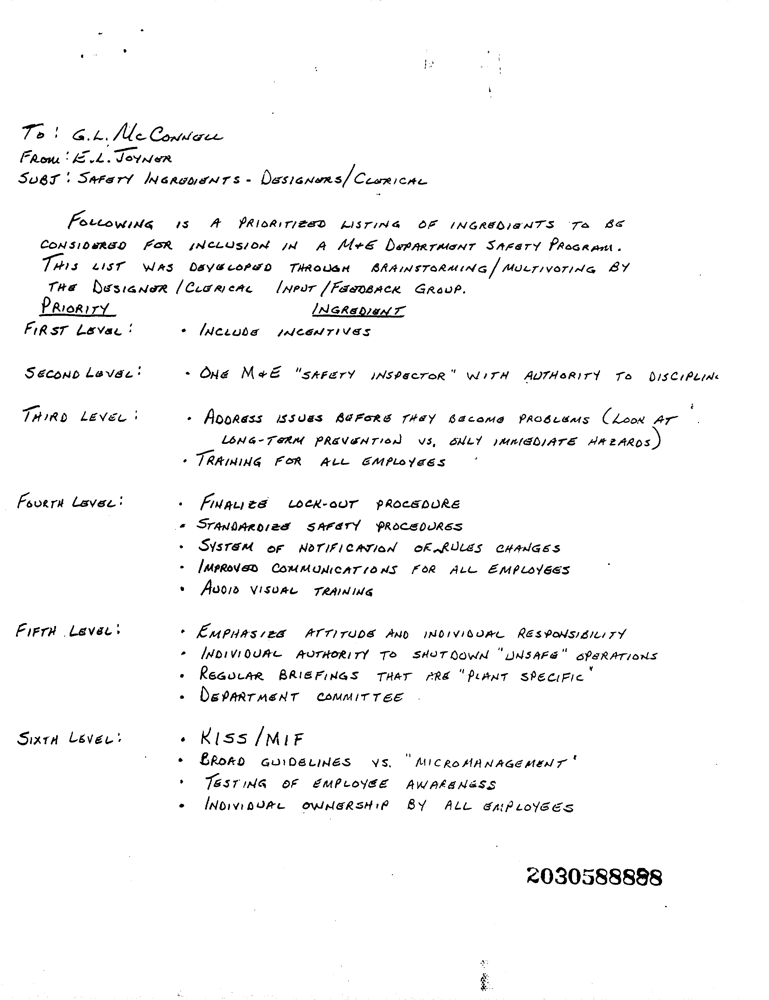 TO: G.L. MCCONNELL
FROM: E.L. JOYNER
SUBJ: SAFETY INGREDIENTS - DESIGNERS/CLERICAL
FOLLOWING IS A PRIORITIZED LISTING OF INGREDIENTS TO BE
CONSIDERED FOR INCLUSION IN A M+E DEPARTMENT SAFETY PROGRAM.
THIS LIST WAS DEVELOPED THROUGH BRAINSTORMING/MULTIVOTING BY
THE DESIGNER/CLERICAL INPUT/FEEDBACK GROUP.
PRIORITY INGREDIENT
FIRST LEVEL: • INCLUDE INCENTIVES
SECOND LEVEL: • ONE M+E "SAFETY INSPECTOR" WITH AUTHORITY TO DISCIPLINE
THIRD LEVEL: • ADDRESS ISSUES BEFORE THEY BECOME PROBLEMS (LOOK AT
LONG-TERM PREVENTION VS. ONLY IMMEDIATE HAZARDS)
• TRAINING FOR ALL EMPLOYEES
FOURTH LEVEL: • FINALIZE LOCK-OUT PROCEDURE
• STANDARDIZED SAFETY PROCEDURES
• SYSTEM OF NOTIFICATION OF RULES CHANGES
• IMPROVED COMMUNICATIONS FOR ALL EMPLOYEES
• AUDIO VISUAL TRAINING
FIFTH LEVEL: • EMPHASIZE ATTITUDE AND INDIVIDUAL RESPONSIBILITY
• INDIVIDUAL AUTHORITY TO SHUTDOWN "UNSAFE" OPERATIONS
• REGULAR BRIEFINGS THAT ARE "PLANT SPECIFIC"
• DEPARTMENT COMMITTEE
SIXTH LEVEL: • KISS/MIF
• BROAD GUIDELINES VS. "MICROMANAGEMENT"
• TESTING OF EMPLOYEE AWARENESS
• INDIVIDUAL OWNERSHIP BY ALL EMPLOYEES
2030588898